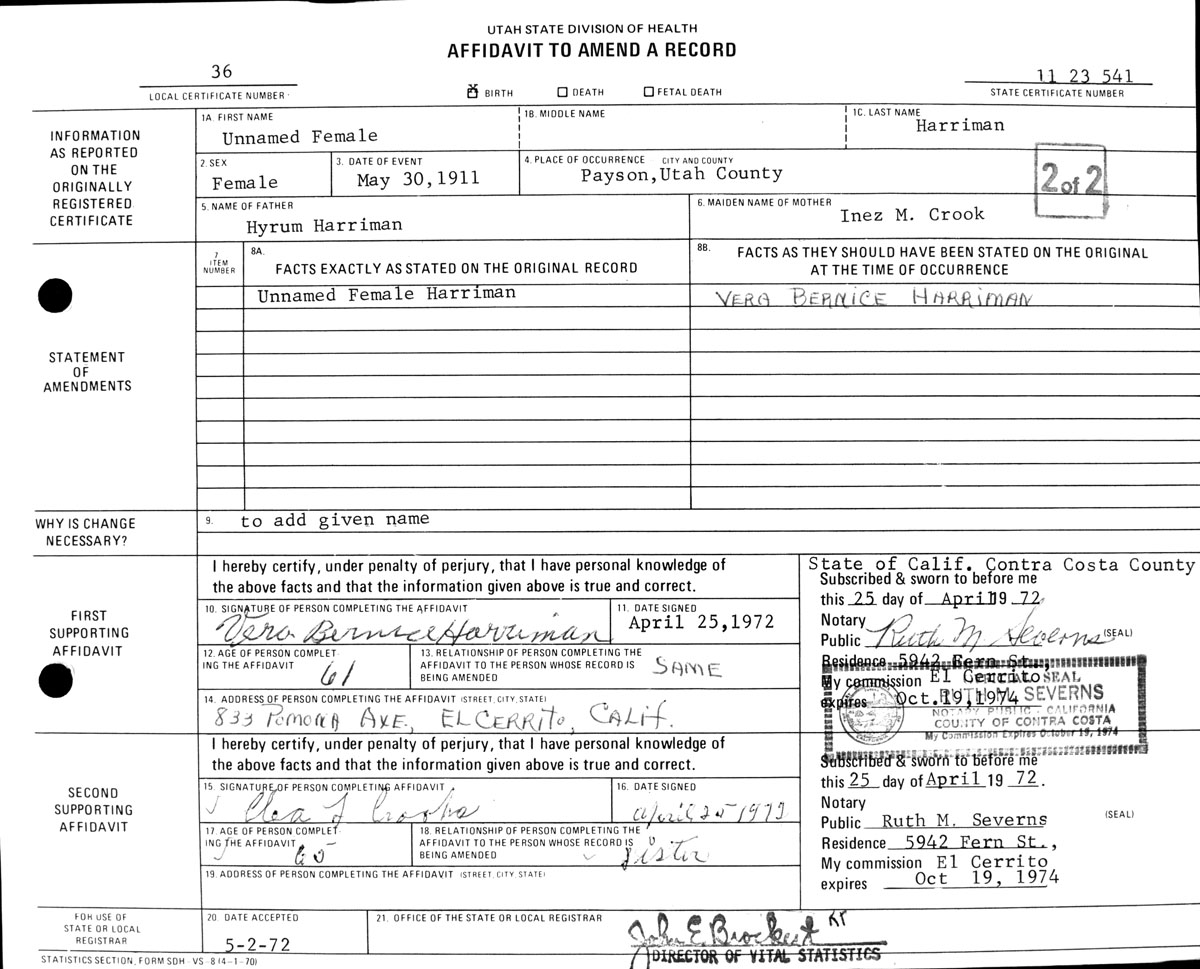 UTAH STATE DIVISION OF HEALTH
AFFIDAVIT TO AMEND A RECORD
36
LOCAL CERTIFICATE NUMBER
BIRTH
DEATH
FETAL DEATH
11 23 541
STATE CERTIFICATE NUMBER
INFORMATION
AS REPORTED
ON THE
ORIGINALLY
REGISTERED
CERTIFICATE
1A. FIRST NAME
Unnamed Female
1B. MIDDLE NAME
1C. LAST NAME
Harriman
2. SEX
Female
3. DATE OF EVENT
May 30,1911
4. PLACE OF OCCURRENCE CITY AND COUNTY
Payson,Utah County
2 of 2
5. NAME OF FATHER
Hyrum Harriman
6. MAIDEN NAME OF MOTHER
Inez M. Crook
STATEMENT
OF
AMENDMENTS
7
ITEM
NUMBER
8A.
FACTS EXACTLY AS STATED ON THE ORIGINAL RECORD
8B. FACTS AS THEY SHOULD HAVE BEEN STATED ON THE ORIGINAL
AT THE TIME OF OCCURRENCE
Unnamed Female Harriman
VERA BERNICE HARRIMAN
WHY IS CHANGE
NECESSARY?
9. to add given name
FIRST
SUPPORTING
AFFIDAVIT
I hereby certify, under penalty of perjury, that I have personal knowledge of
the above facts and that the information given above is true and correct.
10. SIGNATURE OF PERSON COMPLETING THE AFFIDAVIT
Vera Bernice Harriman
11. DATE SIGNED
April 25,1972
12. AGE OF PERSON COMPLET-
ING THE AFFIDAVIT
61
13. RELATIONSHIP OF PERSON COMPLETING THE
AFFIDAVIT TO THE PERSON WHOSE RECORD IS
BEING AMENDED
SAME
14. ADDRESS OF PERSON COMPLETING THE AFFIDAVIT (STREET, CITY, STATE)
833 POMONA AVE, EL CERRITO, CALIF.
State of Calif. Contra Costa County
Subscribed & sworn to before me
this 25 day of April 19 72
Notary
Public Ruth M Severns (SEAL)
Residence 5942 Fern St.,
My commission El Cerrito
expires Oct.19,1974
SEAL
RUTH M. SEVERNS
NOTARY PUBLIC - CALIFORNIA
COUNTY OF CONTRA COSTA
My Commission Expires October 19, 1974
SECOND
SUPPORTING
AFFIDAVIT
I hereby certify, under penalty of perjury, that I have personal knowledge of
the above facts and that the information given above is true and correct.
15. SIGNATURE OF PERSON COMPLETING AFFIDAVIT
16. DATE SIGNED
April 25 1972
17. AGE OF PERSON COMPLET-
ING THE AFFIDAVIT
65
18. RELATIONSHIP OF PERSON COMPLETING THE
AFFIDAVIT TO THE PERSON WHOSE RECORD IS
BEING AMENDED
Sister
19. ADDRESS OF PERSON COMPLETING THE AFFIDAVIT (STREET, CITY, STATE)
Subscribed & sworn to before me
this 25 day of April 19 72.
Notary
Public Ruth M. Severns (SEAL)
Residence 5942 Fern St.,
My commission El Cerrito
expires Oct 19, 1974
FOR USE OF
STATE OR LOCAL
REGISTRAR
20. DATE ACCEPTED
5-2-72
21. OFFICE OF THE STATE OR LOCAL REGISTRAR
John E Brockert
DIRECTOR OF VITAL STATISTICS
STATISTICS SECTION, FORM SDH - VS - 8 (4-1-70)